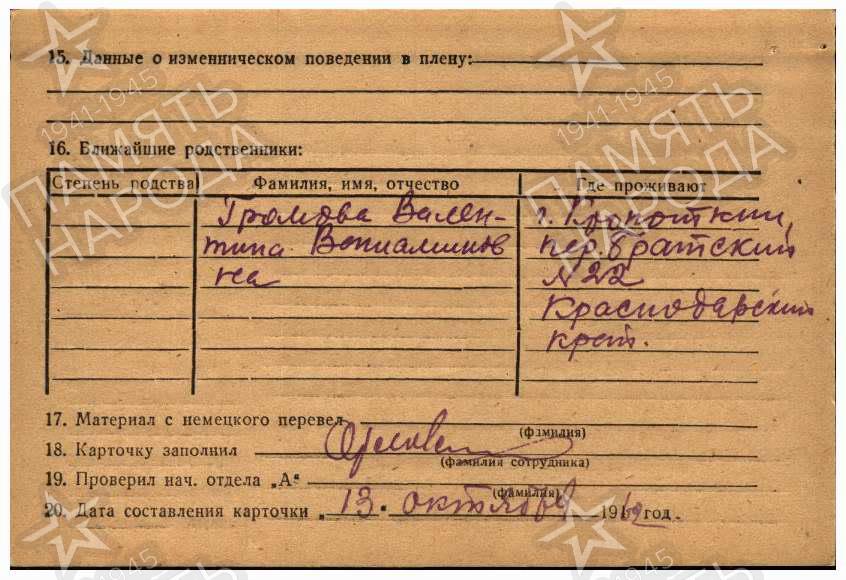 15. Данные о изменническом поведении в плену:
16. Ближайшие родственники:
Степень родства Фамилия, имя, отчество Где проживают
Громова Вален- г. Кропоткин,
тина Вениаминов пер. Братский
на №22
Краснодарский
край.
17. Материал с немецкого перевел
(фамилия)
18. Карточку заполнил
(фамилия сотрудника)
19. Проверил нач. отдела „А“
(фамилия)
20. Дата составления карточки „13“ октября 19 год.
1941-1945
ПАМЯТЬ
НАРОДА
1941-1945
ПАМЯТЬ
НАРОДА